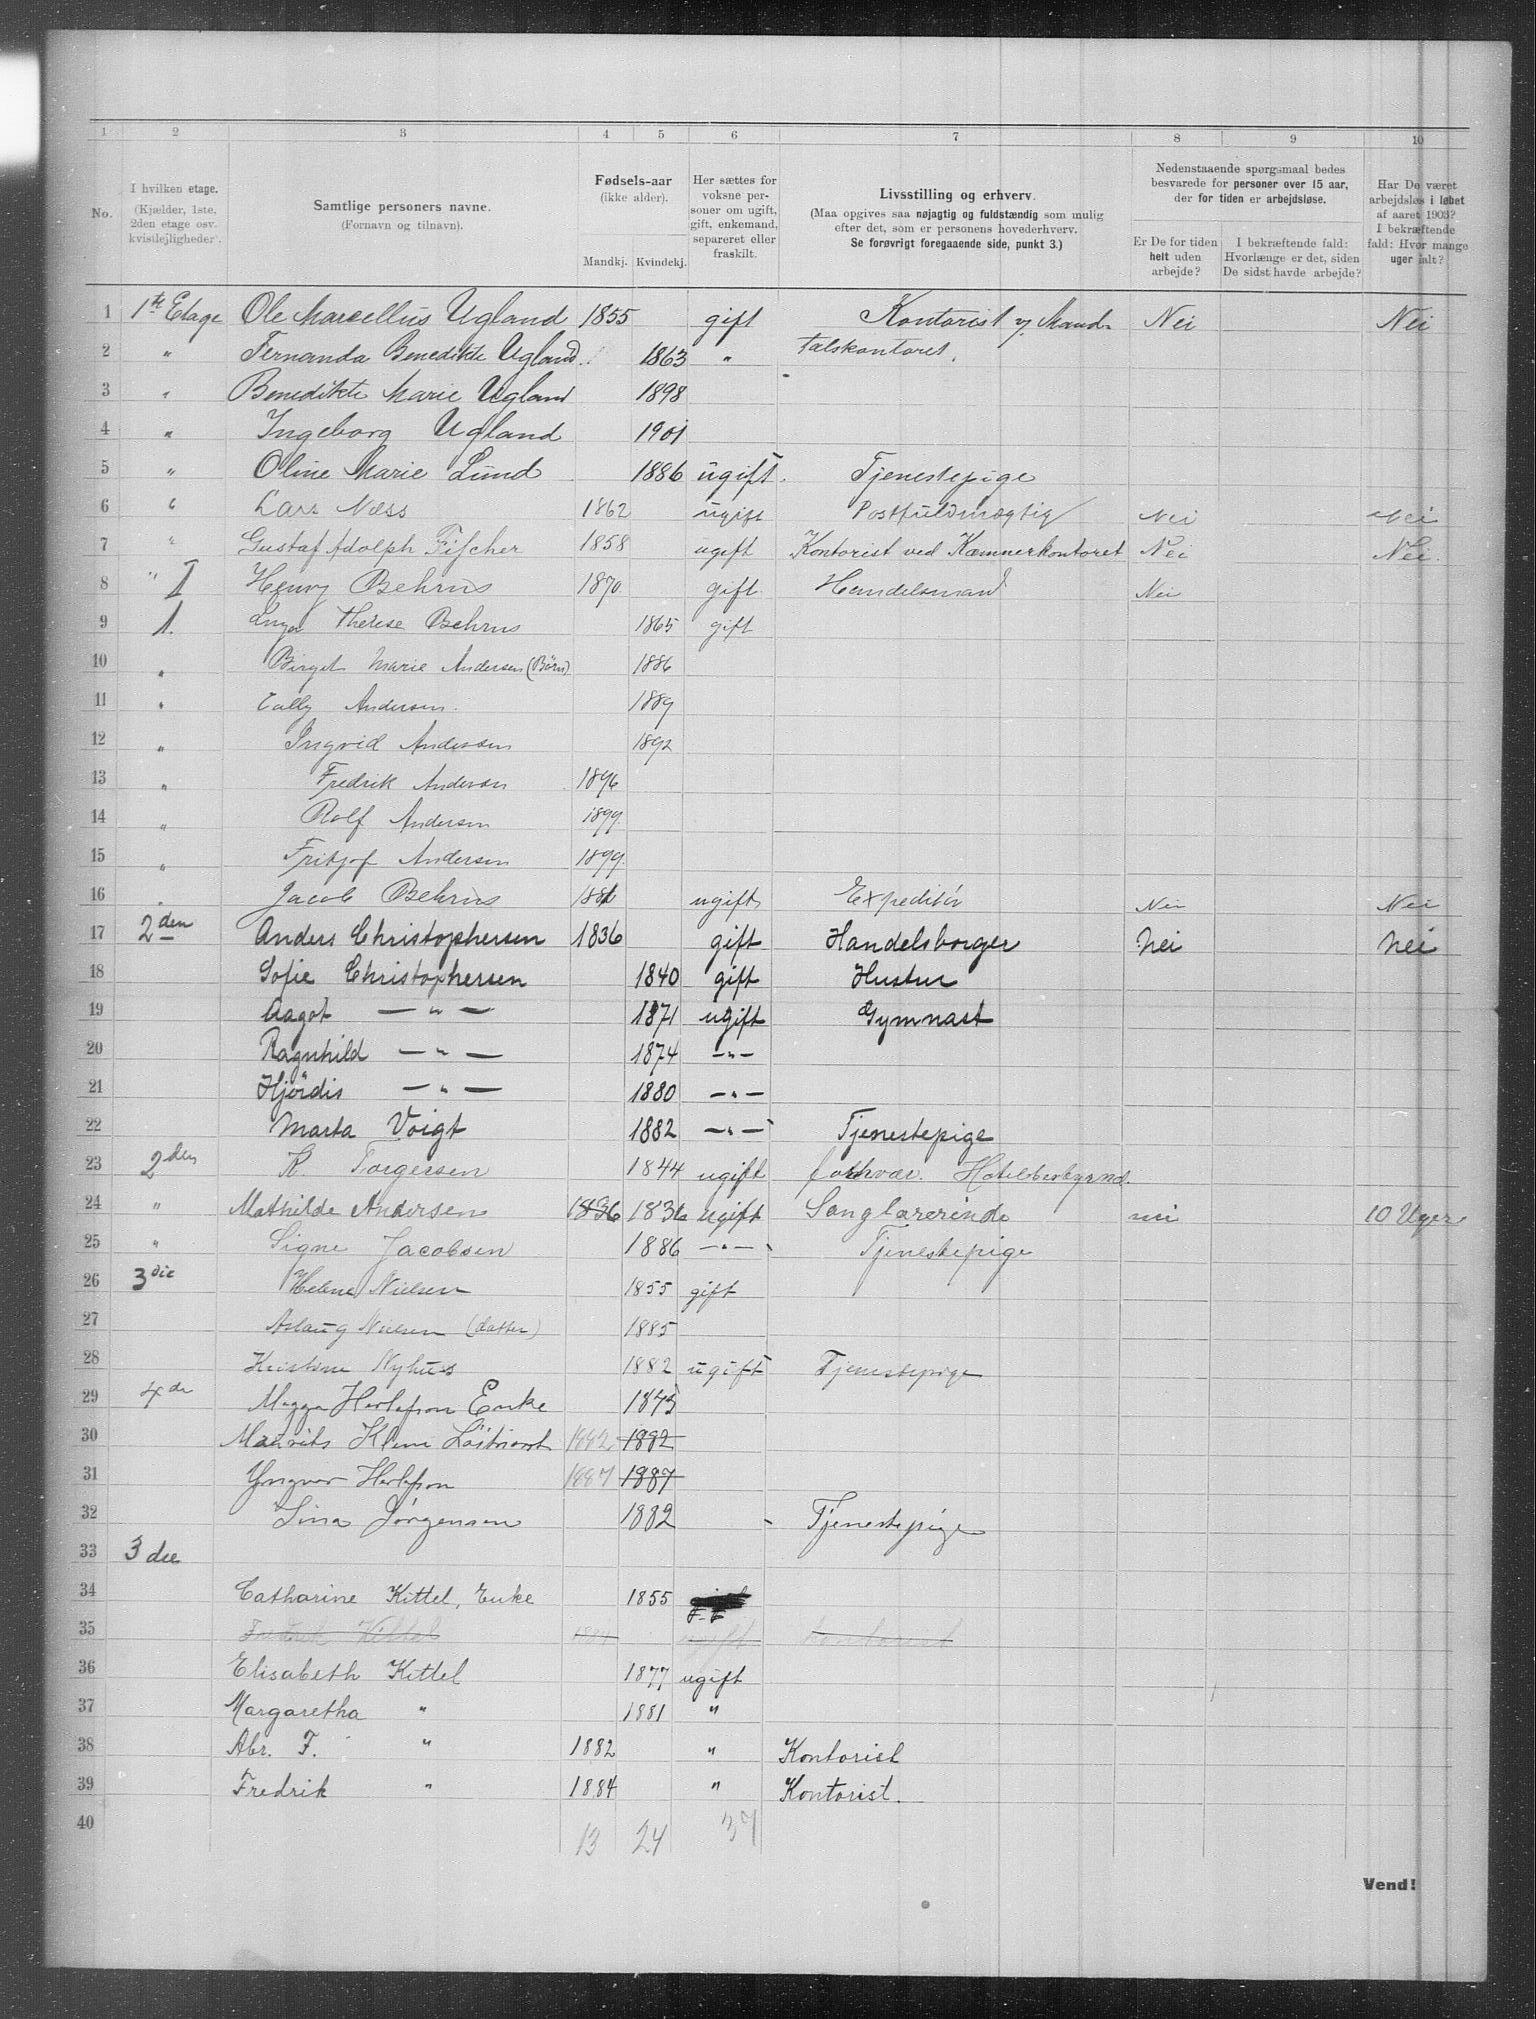 1 2 3 4 5 6 7 8 9 10
No.
I hvilken etage.
(Kjælder, 1ste, 2den etage osv. kvistlejligheder).
Samtlige personers navne.
(Fornavn og tilnavn).
Fødsels-aar
(ikke alder).
Mandkj. Kvindekj.
Her sættes for voksne personer om ugift, gift, enkemand, separeret eller fraskilt.
Livsstilling og erhverv.
(Maa opgives saa nøjagtig og fuldstændig som mulig efter det, som er personens hovederhverv. Se forøvrigt foregaaende side, punkt 3.)
Nedenstaaende spørgsmaal bedes besvarede for personer over 15 aar, der for tiden er arbejdsløse.
Er De for tiden helt uden arbejde?
I bekræftende fald: Hvorlænge er det, siden De sidst havde arbejde?
Har De været arbejdsløs i løbet af aaret 1903? I bekræftende fald: Hvor mange uger ialt?
1 1ste Etage Ole Marcellus Ugland 1855 gift Kontorist v/ Mand- Nei Nei
2 " Fernanda Benedikte Ugland. 1863 " talskontoret.
3 " Benedikte Marie Ugland 1898
4 " Ingeborg Ugland 1901
5 " Oline Marie Lund 1886 ugift. Tjenestepige
6 " Lars Næss 1862 ugift Postfuldmægtig Nei Nei
7 " Gustaf Adolph Fischer 1858 ugift Kontorist ved Kæmnerkontoret Nei Nei.
8 " I Henry Behrns 1870. gift. Handelsmand Nei
9 1. Inga Therese Behrns 1865 gift
10 " Birget Marie Andersen (Børn) 1886
11 " Cally Andersen. 1889
12 " Ingrid Andersen 1892
13 " Fredrik Andersen 1896
14 " Rolf Andersen 1899.
15 " Fritjof Andersen 1899.
16 " Jacob Behrns ugift Expeditør Nei Nei
17 2den Anders Christophersen 1836 gift Handelsborger Nei Nei
18 Sofie Christophersen 1840 gift Hustru
19 Aagot — " — 1871 ugift Gymnast
20 Ragnhild — " — 1874 — " —
21 Hjördis — " — 1880 — " —
22 Marta Voigt 1882 — " — Tjenestepige
23 2den K Torgersen 1844 ugift
24 " Mathilde Andersen 1836 1836 ugift Sanglærerinde nei 10 Uger
25 " Signe Jacobsen 1886 — " — Tjenestepige
26 3die Helene Nielsen 1855 gift
27 Aslaug Nielsen (datter) 1885
28 Kristine Nyhus 1882 ugift Tjenestepige
29 4de Magga Herlofson Enke 1845
30 Klem 1882 1882
31 Yngvar Herlofson 1887 1887
32 Lina Jørgensen 1882 Tjenestepige
33 3die
34 Catharine Kittel, Enke 1855
35 Fredrik Kittel 1884 ugift Kontorist
36 Elisabeth Kittel 1877 ugift
37 Margaretha " 1881 "
38 Abr. F. " 1882 " Kontorist
39 Fredrik " 1884 " Kontorist.
40 13 24 37
Vend!